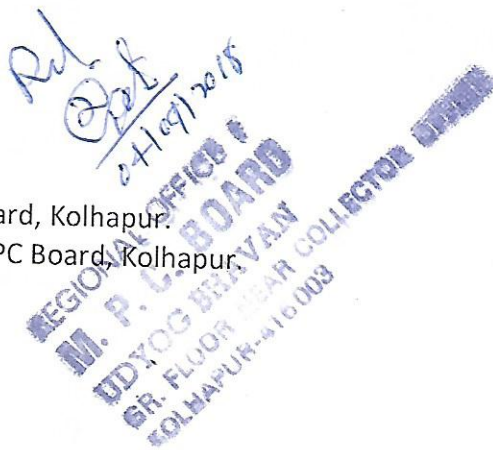 Rd.
04/09/2018
ard, Kolhapur.
PC Board, Kolhapur.
REGIONAL OFFICE
M. P. C. BOARD
UDYOG BHAVAN
GR. FLOOR NEAR COLLECTOR OFFICE
KOLHAPUR-416 003